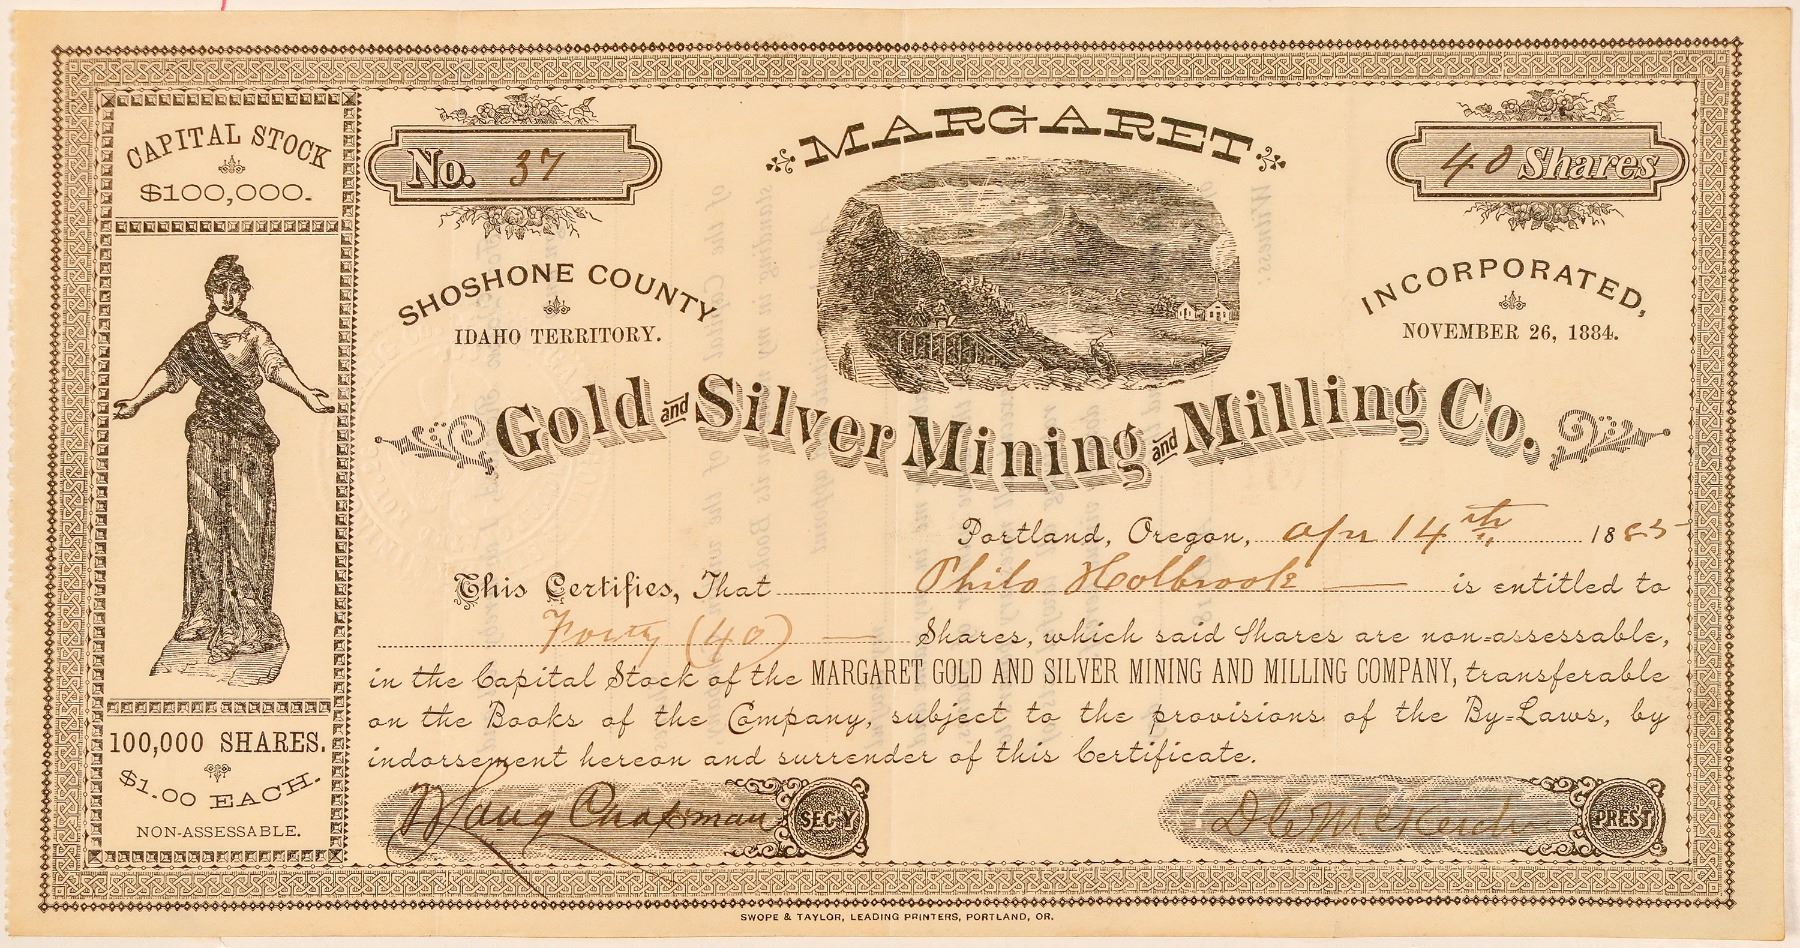 MARGARET
CAPITAL STOCK
$100,000.
No. 37
40 Shares
SHOSHONE COUNTY
IDAHO TERRITORY.
INCORPORATED,
NOVEMBER 26, 1884.
Gold and Silver Mining and Milling Co.
Portland, Oregon, Apr 14th 1885
This Certifies, That Philo Holbrook is entitled to
Forty (40) Shares, which said Shares are non-assessable,
in the Capital Stock of the MARGARET GOLD AND SILVER MINING AND MILLING COMPANY, transferable
on the Books of the Company, subject to the provisions of the By-Laws, by
indorsement hereon and surrender of this Certificate.
100,000 SHARES.
$1.00 EACH.
NON-ASSESSABLE.
Chapman SEC'Y
PREST
SWOPE & TAYLOR, LEADING PRINTERS, PORTLAND, OR.